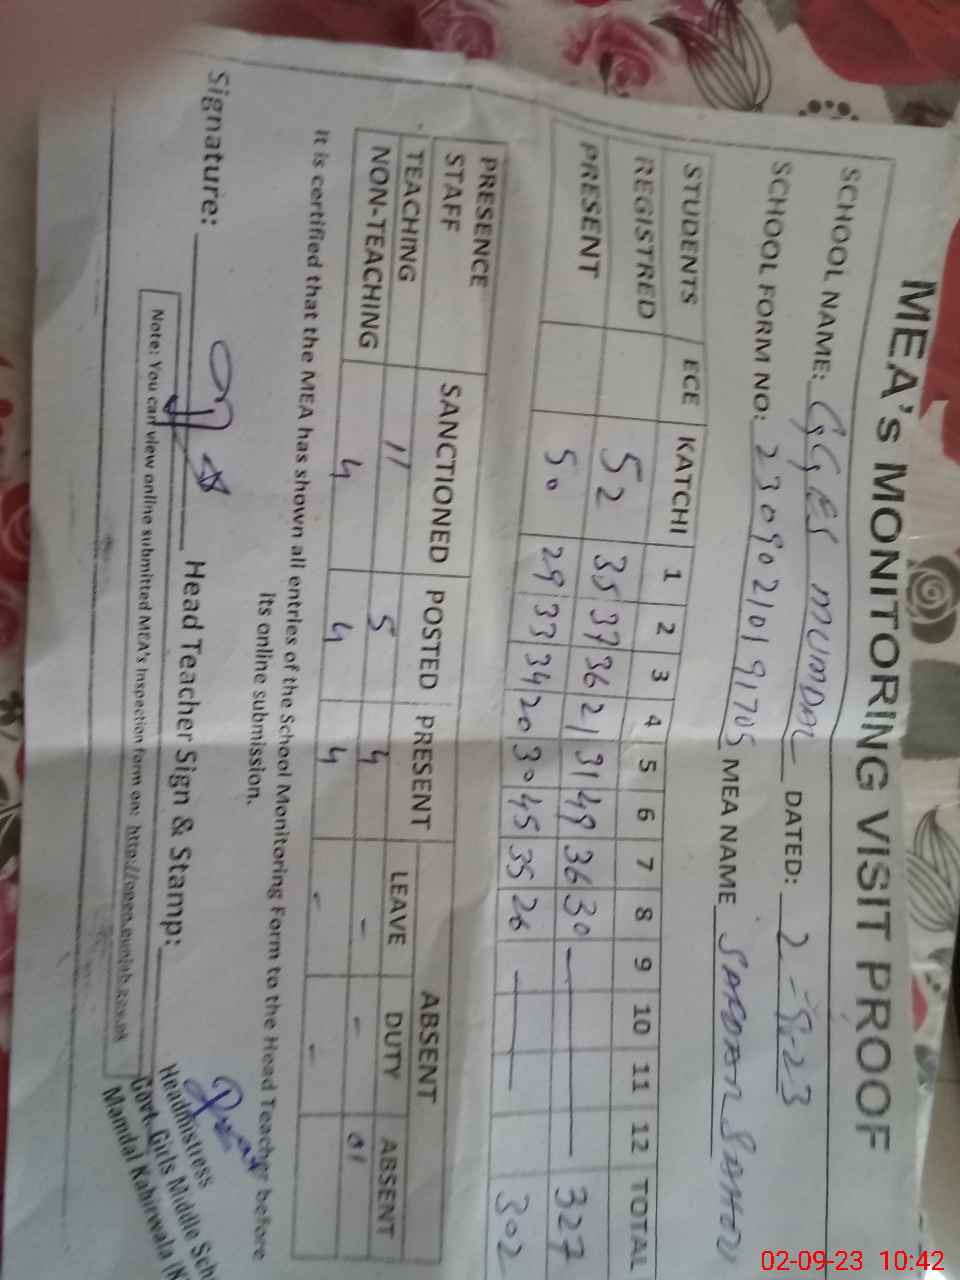 MEA's MONITORING VISIT PROOF
SCHOOL NAME: GGES MUMDAL DATED: 2-9-23
SCHOOL FORM NO: 230902101 91705 MEA NAME SARDAR
STUDENTS ECE KATCHI 1 2 3 4 5 6 7 8 9 10 11 12 TOTAL
REGISTRED 52 35 37 36 21 31 49 36 30 — 327
PRESENT 50 29 33 34 20 30 45 35 26 — 302
PRESENCE ABSENT
STAFF SANCTIONED POSTED PRESENT LEAVE DUTY ABSENT
TEACHING 11 5 4 - - 01
NON-TEACHING 4 4 4 - -
It is certified that the MEA has shown all entries of the School Monitoring Form to the Head Teacher before
its online submission.
Signature: Head Teacher Sign & Stamp:
Headmistress
Govt. Girls Middle Sch
Mamdal Kahirwala (K
Note: You can view online submitted MEA's Inspection form on: http://open.punjab.gov.pk
02-09-23 10:42